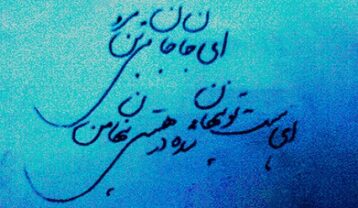 ای جان جان بی تن مرو
ای هست تو پنهان شده در هستی پنهان من